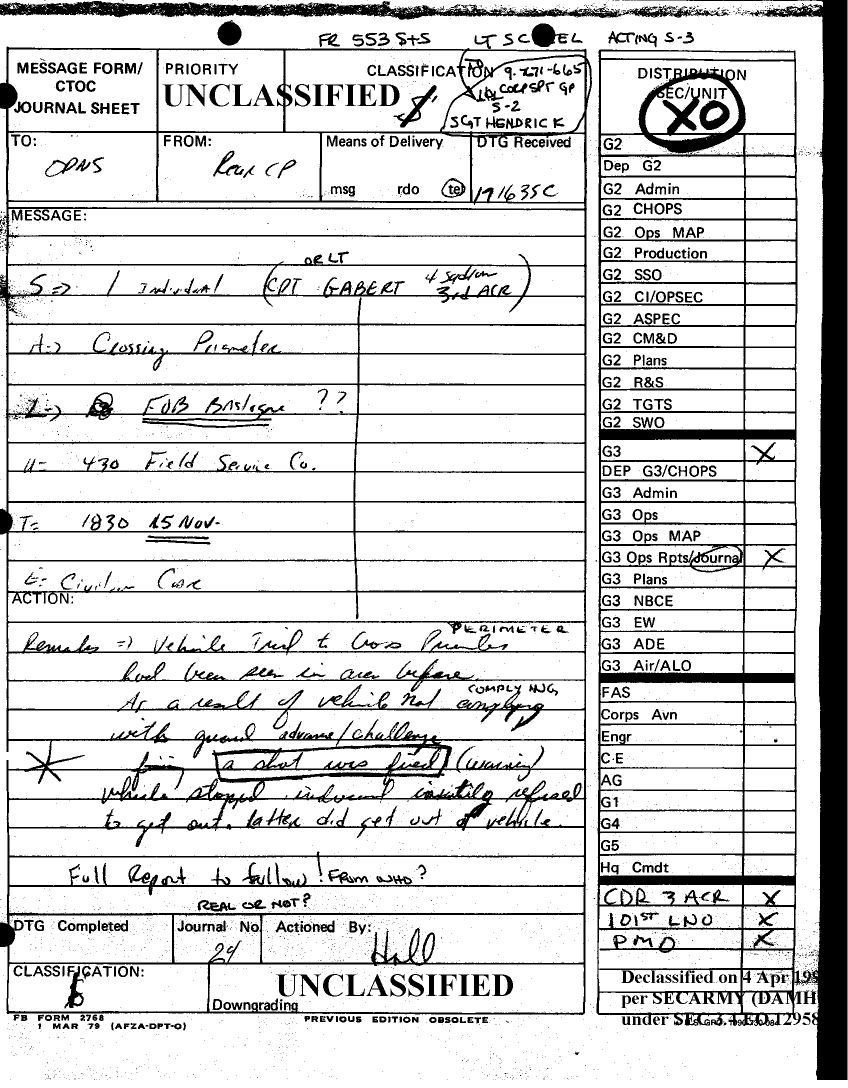 FR 553 S+S LT SC EL ACTING S-3
MESSAGE FORM/
CTOC
JOURNAL SHEET
PRIORITY
CLASSIFICATION
UNCLASSIFIED
9-271-665
CORPSPT GP
S-2
SGT HENDRICK
TO:
OPNS
FROM:
Rear CP
Means of Delivery
msg rdo tel
DTG Received
191635C
MESSAGE:
OR LT
S=> 1 Individual (CPT GABERT 4 Sqdrn
3rd ACR)
A=> Crossing Perimeter
L=> FOB Bastogne ??
U= 430 Field Service Co.
T= 1830 15 Nov.
E= Civilian Car
ACTION:
PERIMETER
Remarks => Vehicle Tried to Cross
had been seen in area before.
COMPLYING
As a result of vehicle not complying
with guard advance/challenge
a shot was fired (warning)
vehicle stopped. individual refused
to get out. latter did get out of vehicle.
Full Report to follow! FROM WHO?
REAL OR NOT?
DTG Completed
Journal No
24
Actioned By:
Hall
CLASSIFICATION:
UNCLASSIFIED
Downgrading
FB FORM 2768
1 MAR 79 (AFZA-DPT-O)
PREVIOUS EDITION OBSOLETE
DISTRIBUTION
SEC/UNIT
XO
G2
Dep G2
G2 Admin
G2 CHOPS
G2 Ops MAP
G2 Production
G2 SSO
G2 CI/OPSEC
G2 ASPEC
G2 CM&D
G2 Plans
G2 R&S
G2 TGTS
G2 SWO
G3 X
DEP G3/CHOPS
G3 Admin
G3 Ops
G3 Ops MAP
G3 Ops Rpts/Journal X
G3 Plans
G3 NBCE
G3 EW
G3 ADE
G3 Air/ALO
FAS
Corps Avn
Engr
C-E
AG
G1
G4
G5
Hq Cmdt
CDR 3 ACR X
101ST LNO X
PMO X
Declassified on 4 Apr 199
per SECARMY (DAMH
under SEC 3.4 EO 12958